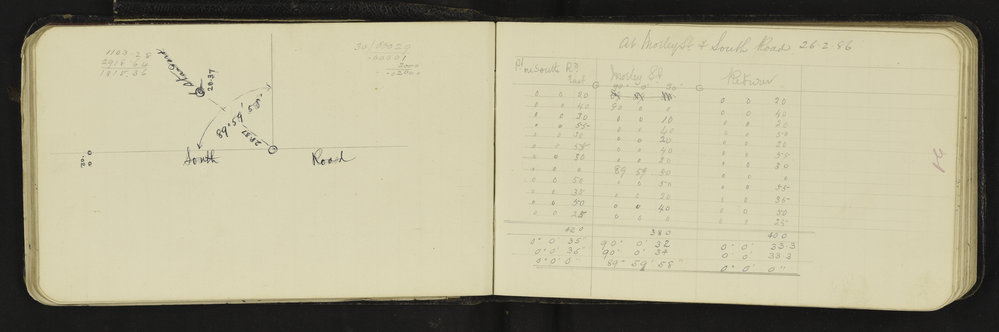 1103.28
2918.64
1815.36
Standard
20.37
89° 59' 58"
28.87
South Road
At Morley St & South Road 26.2.86
Pt in South Rd East
Morley St
Return
90° 0' 30
0 0 20
0 0 20
0 0 40 90 0 0 0 0 40
0 0 30 0 0 10 0 0 20
0 0 55 0 0 40 0 0 50
0 0 30 0 0 20 0 0 20
0 0 55 0 0 40 0 0 55
0 0 30 0 0 20 0 0 30
0 0 0 89 59 50 0 0 0
0 0 50 0 0 50 0 0 55
0 0 35 0 0 20 0 0 35
0 0 50 0 0 40 0 0 50
0 0 25 0 0 0 0 0 25
420 380 400
0° 0' 35" 90° 0' 32 0° 0' 33.3
0° 0' 36" 90° 0' 34 0° 0' 33.3
0° 0' 0" 89° 59' 58" 0° 0' 0"